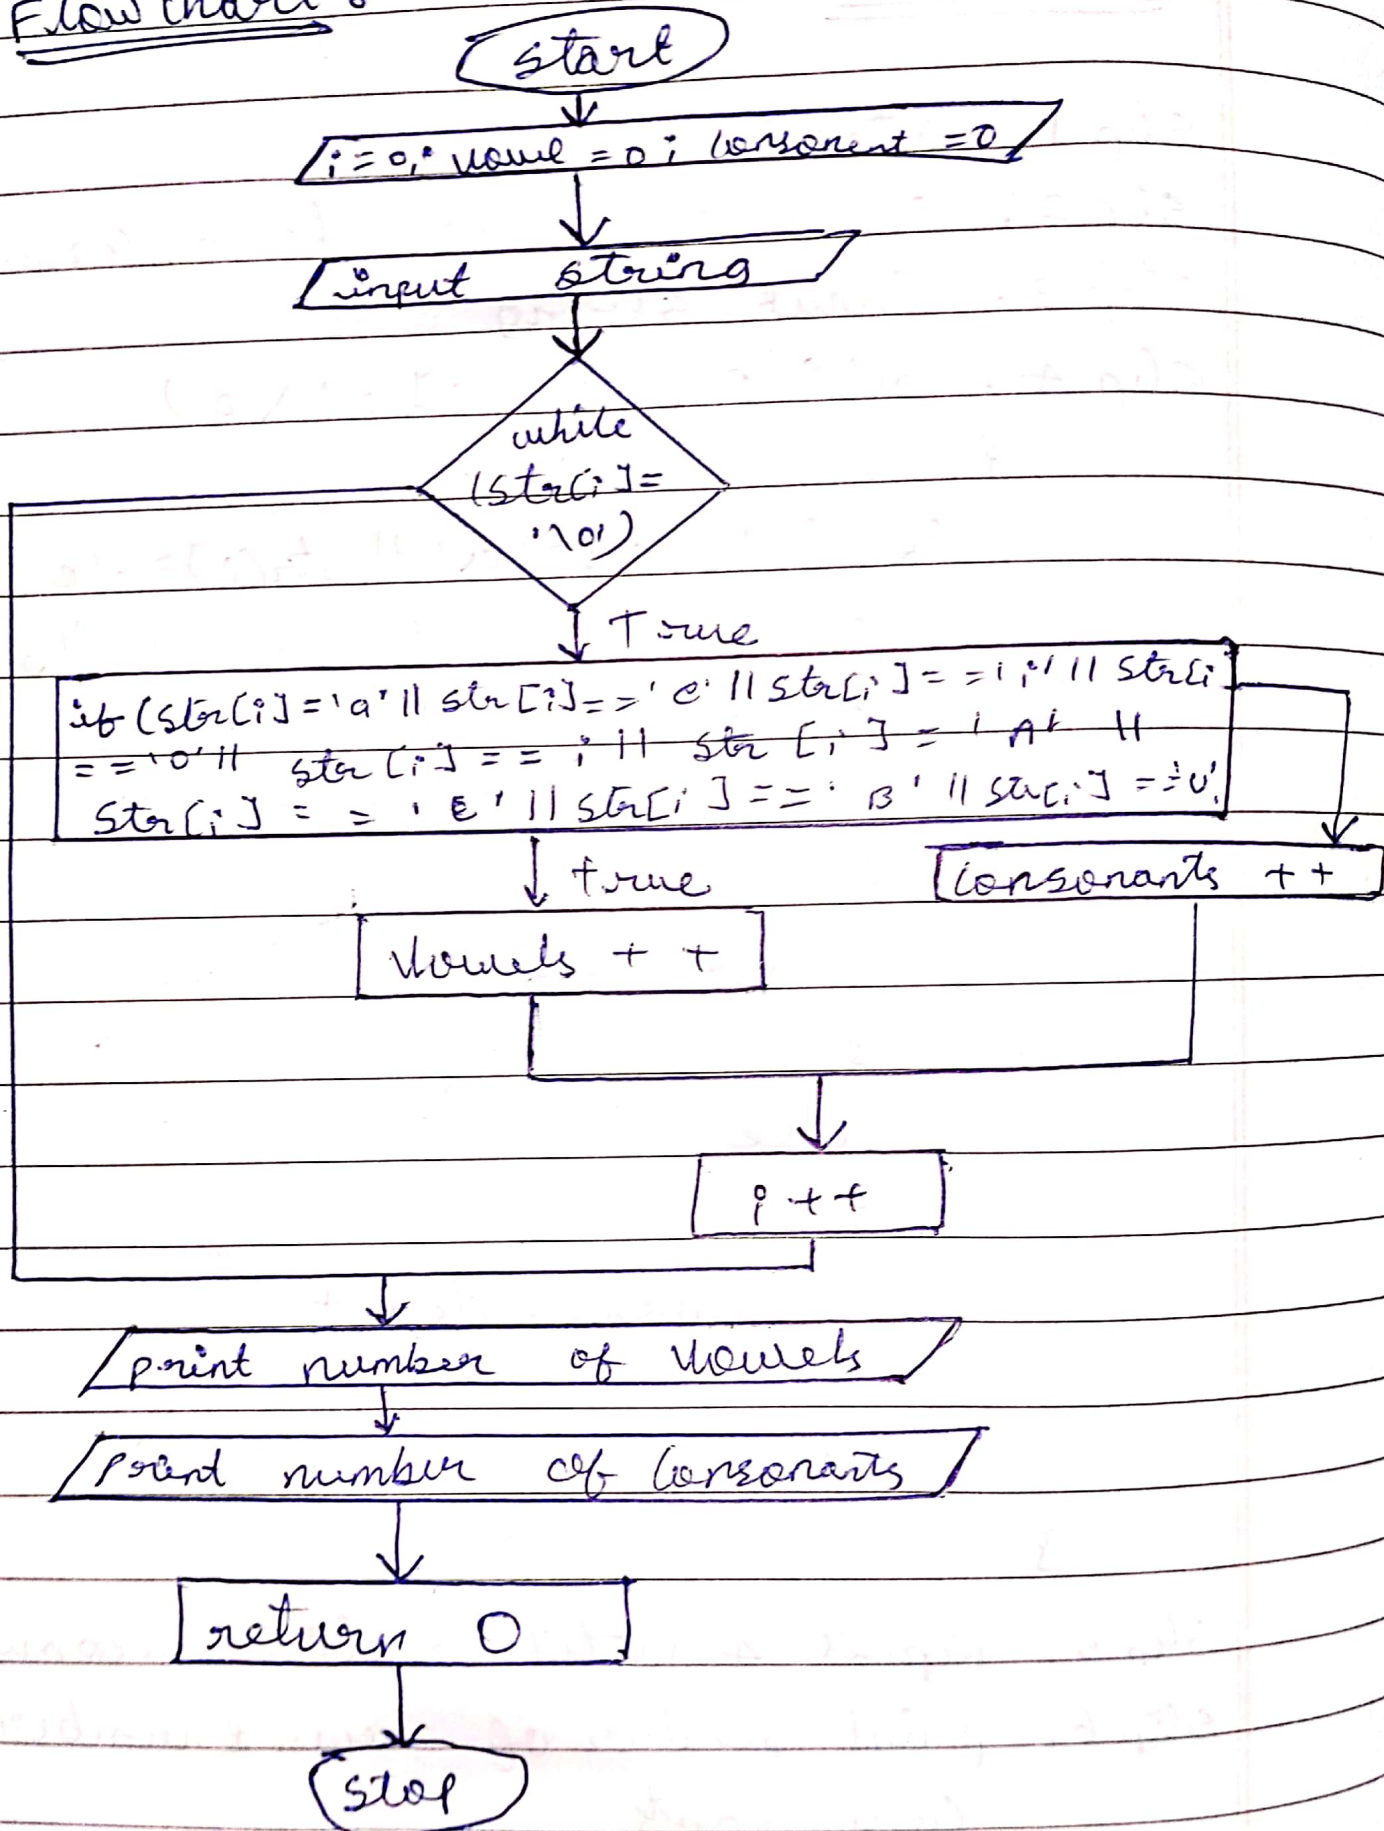 Flow chart :
start
i = 0; vowel = 0; consonent = 0
input string
while
(str[i] =
'\0')
True
if (str[i] = 'a' || str[i] == 'e' || str[i] == 'i' || str[i
== 'o' || str[i] == i || str [i] = 'A' ||
str[i] = = 'E' || str[i] == 'B' || str[i] == 'U'
true
consonants ++
vowels + +
i ++
print number of vowels
print number of consonants
return 0
stop